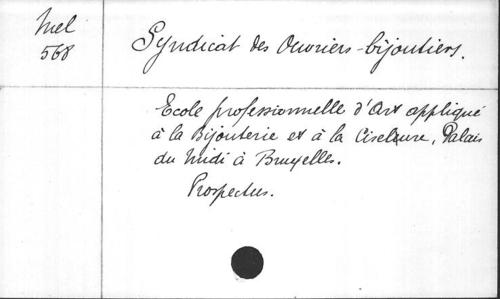 Mel
568
Syndicat des Ouvriers-bijoutiers.
Ecole professionnelle d'Art appliqué
à la Bijouterie et à la Ciselure, Palais
du Midi à Bruxelles.
Prospectus.